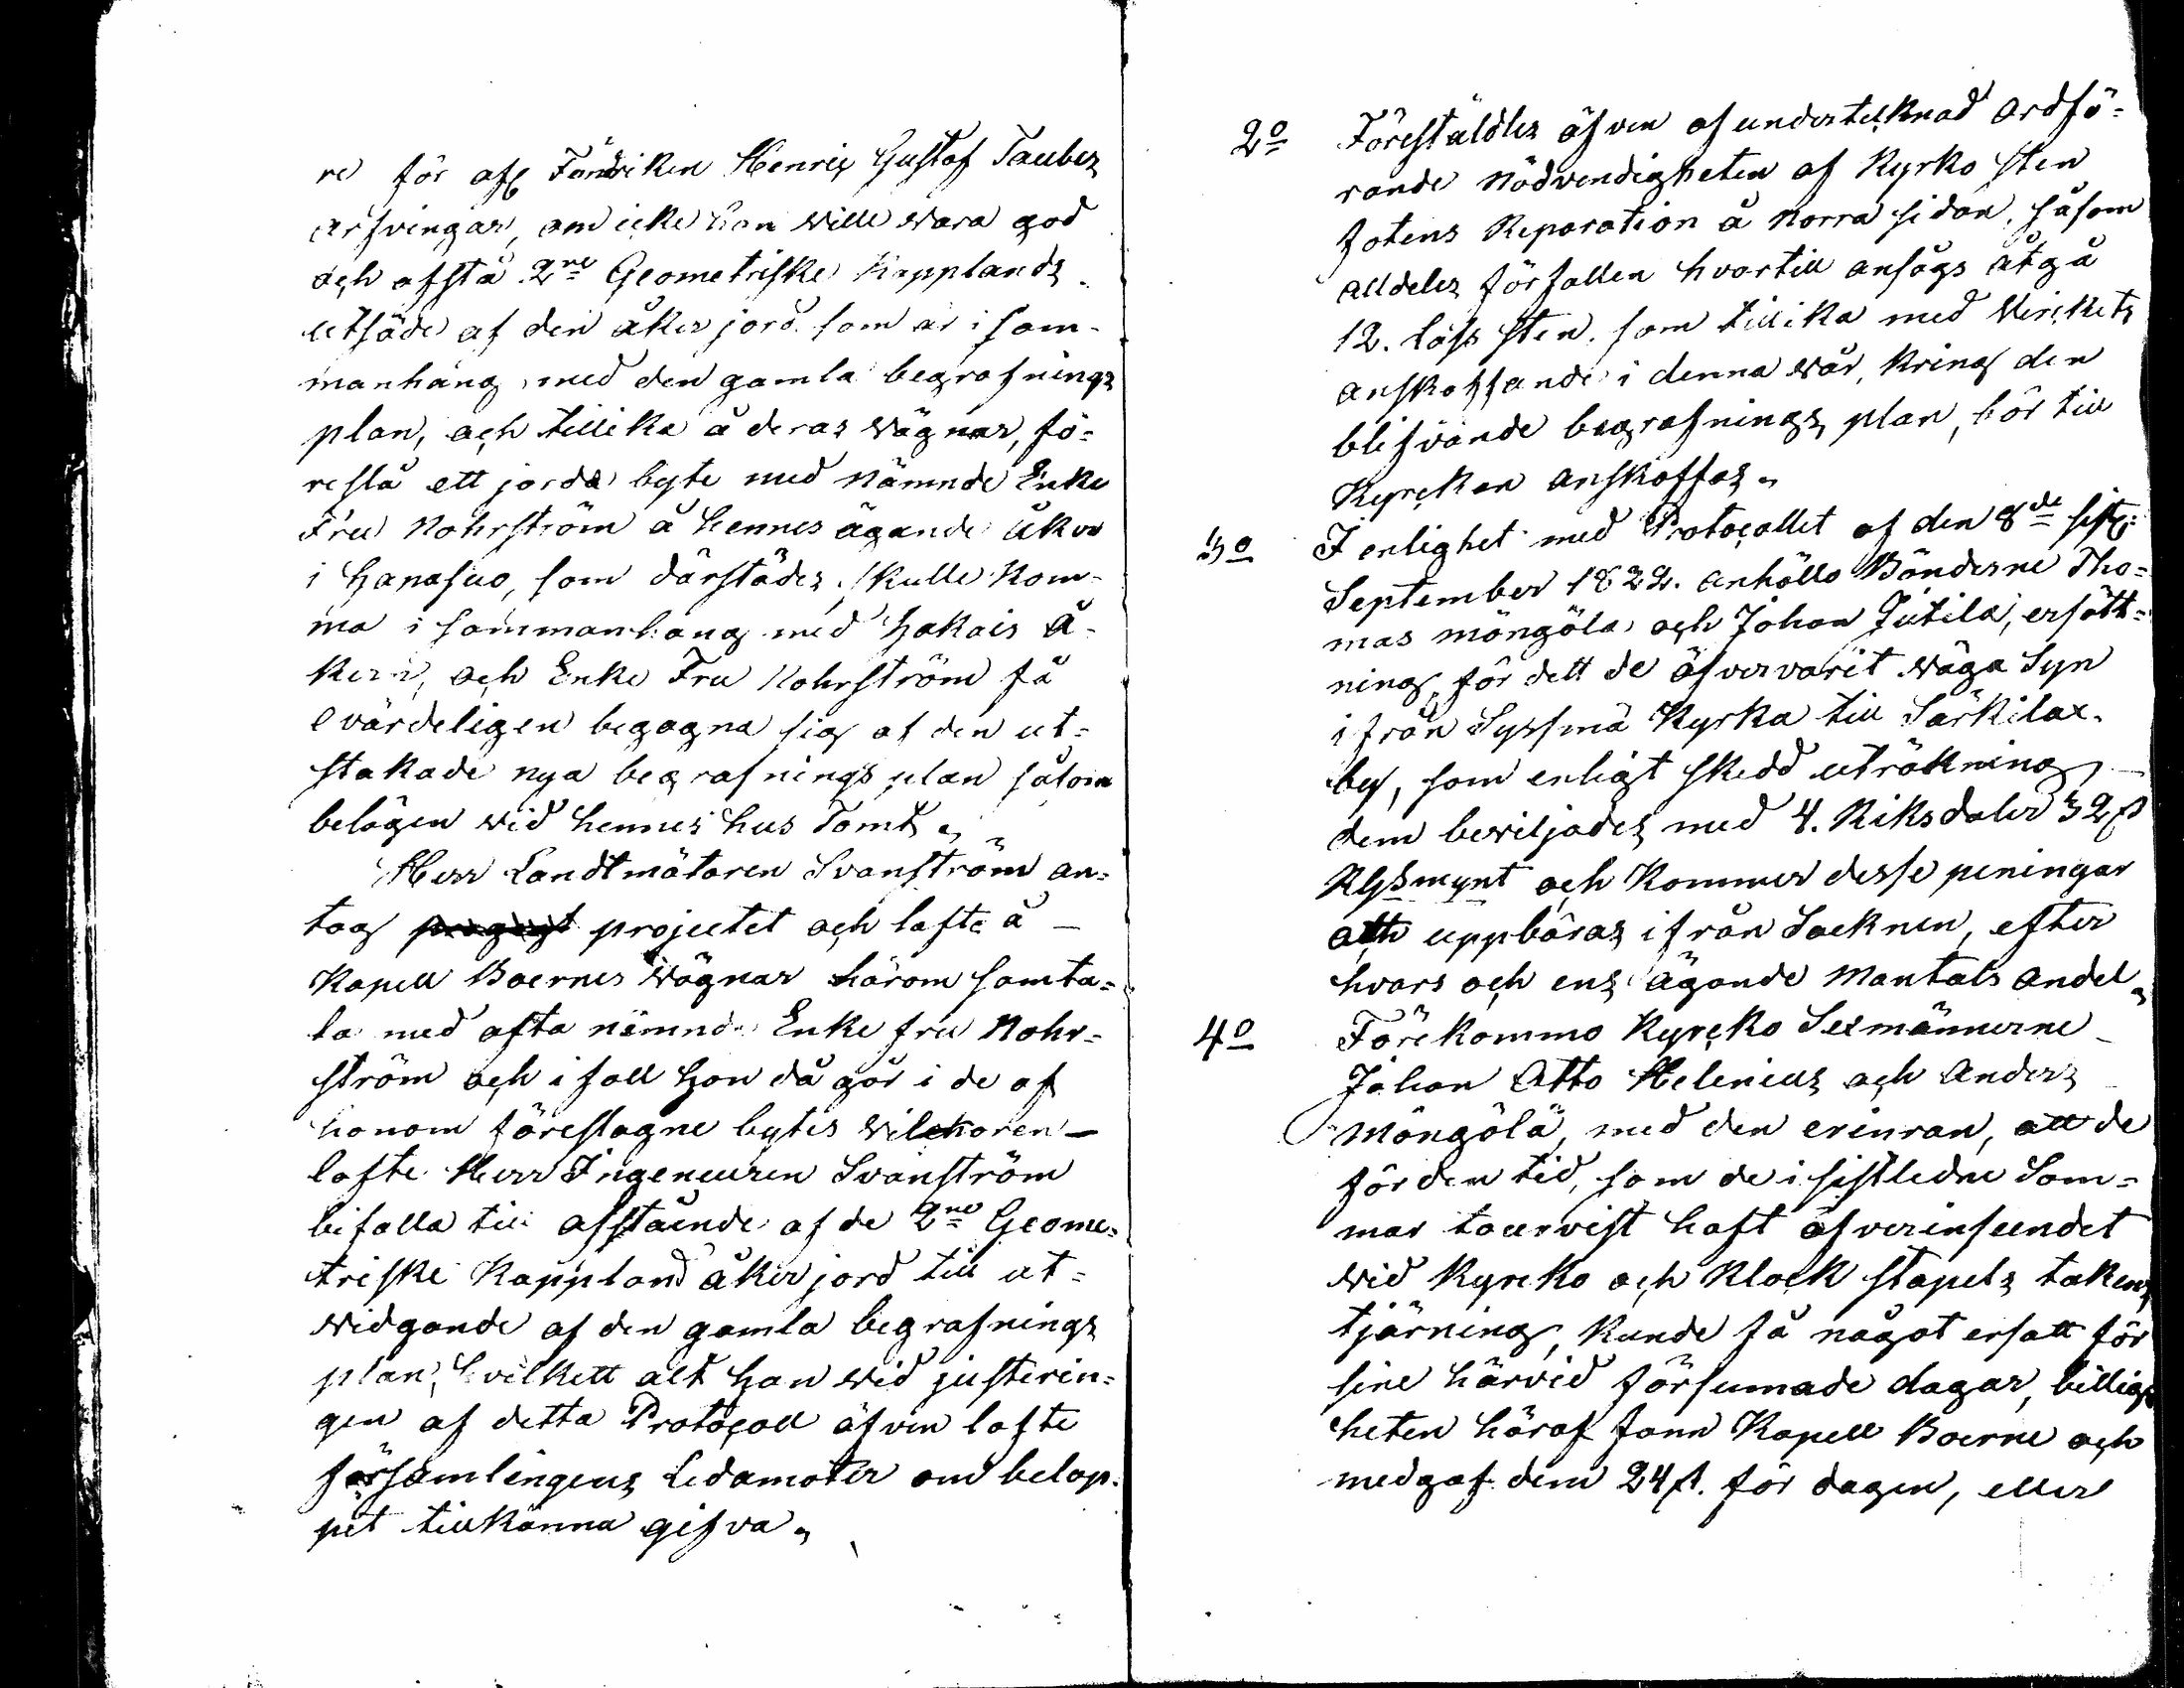 re för afl. Fändriken Henric Gustaf Taubes
arfvingar, om icke han wille wara god
och afstå 2ne Geometriske Kapplands
utsäde af den åker jord som är i sam-
manhang med den gamla begrafnings
plan, och tillika å deras wägnar, fö=
reslå ett jorda byte med nämnde Enke
Fru Nohrström å hennes ägande åker
i Hanasuo, som därstädes skulle kom-
ma i sammanhang med Hakais å-
kern, och Enke Fru Nohrström få
evärdeligen begagna sig af den ut=
stakade nya begrafnings plan såsom
belägen wid hennes hus Tomt.
Herr Landtmätaren Svanström an=
tog projectet och lofte å
Kapell Boernes wägnar härom samta=
la med ofta nämnde Enke fru Nohr=
ström och i fall Han då gör i de af
honom föreslagne bytes wilckoren
lofte Herr Ingeneuren Svanström
bifalla till afstående af de 2ne Geome=
triske Kappland åker jord till ut=
widgande af den gamla begrafnings
plan, hvilkett alt Han wid justerin=
gen af detta Protocoll äfven lofte
församlingens Ledamoter om belop-
pet tillkänna gifva.
2o Föreställdes äfven af undertecknad ordfö=
rande Nödvendigheten af Kyrko sten
fotens Reparation å Norra sidan, såsom
alldeles förfallen hvartill ansågs åtgå
12. lass sten. som tillika med Virckets
anskaffande i denna wår, kring den
blifvande begrafnings plan, bör till
Kyrckan anskaffas.
3o I enlighet med Protocollet af den 8de sistl:
September 1822. anhöllo Bönderne Tho=
mas Möngölä och Johan Jutila, ersätt=
ning, för dett de öfvervarit wäga Syn
ifrån Syssmä Kyrka till Särkilax
by, som enligt skedd uträkning
dem bewiljades med 4. Riksdaler 32 ß
Rgssmynt och Kommer desse peningar
att uppbäras ifrån Socknen, efter
hvars och ens ägande Mantals andel.
4o Förekommo Kyrcko Sexmännerne
Johan Otto Helenius och Anders
Möngölä, med den erinran, att de
för den tid, som de i sistledne Som=
mar tourvist haft öfverinseendet
wid Kyrcko och Klock stapels takens
tjärning, kunde få något ersatt för
sine härvid försumade dagar, billig
heten häraf fann Kapell Boerne och
medgaf dem 24 ß. för dagen, eller